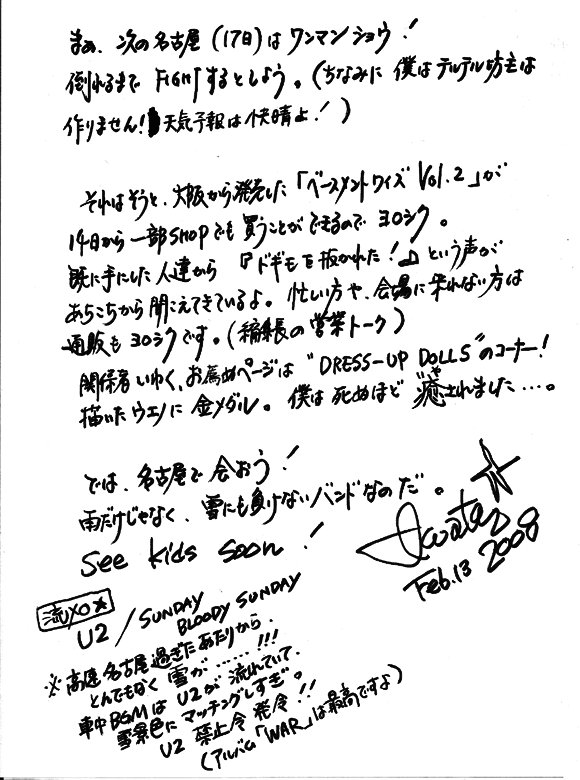 まぁ、次の名古屋(17日)はワンマンショウ!
倒れるまでFIGHTするとしよう。(ちなみに僕はテルテル坊主は
作りません!天気予報は快晴よ!)
それはそうと、大阪から発売した「ベースメントワイズVol.2」が
14日から一部SHOPでも買うことができるのでヨロシク。
既に手にした人達から『ドギモを抜かれた!』という声が
あちこちから聞こえてきているよ。忙しい方や、会場に来れない方は
通販もヨロシクです。(編集長の営業トーク)
関係者いわく、お薦めページは"DRESS-UP DOLLS"のコーナー!
描いたウエノに金メダル。僕は死ぬほど"癒や"されました…。
では、名古屋で会おう!
雨だけじゃなく、雪にも負けないバンドなのだ。
See kids soon!
Feb.13 2008
流UXO★
U2/SUNDAY
BLOODY SUNDAY
※高速名古屋過ぎたあたりから、
とんでもなく雪が……!!!
車中BGMはU2が流れていて、
雪景色にマッチングしすぎ。
U2禁止令発令!!
(アルバム「WAR」は最高ですよ)